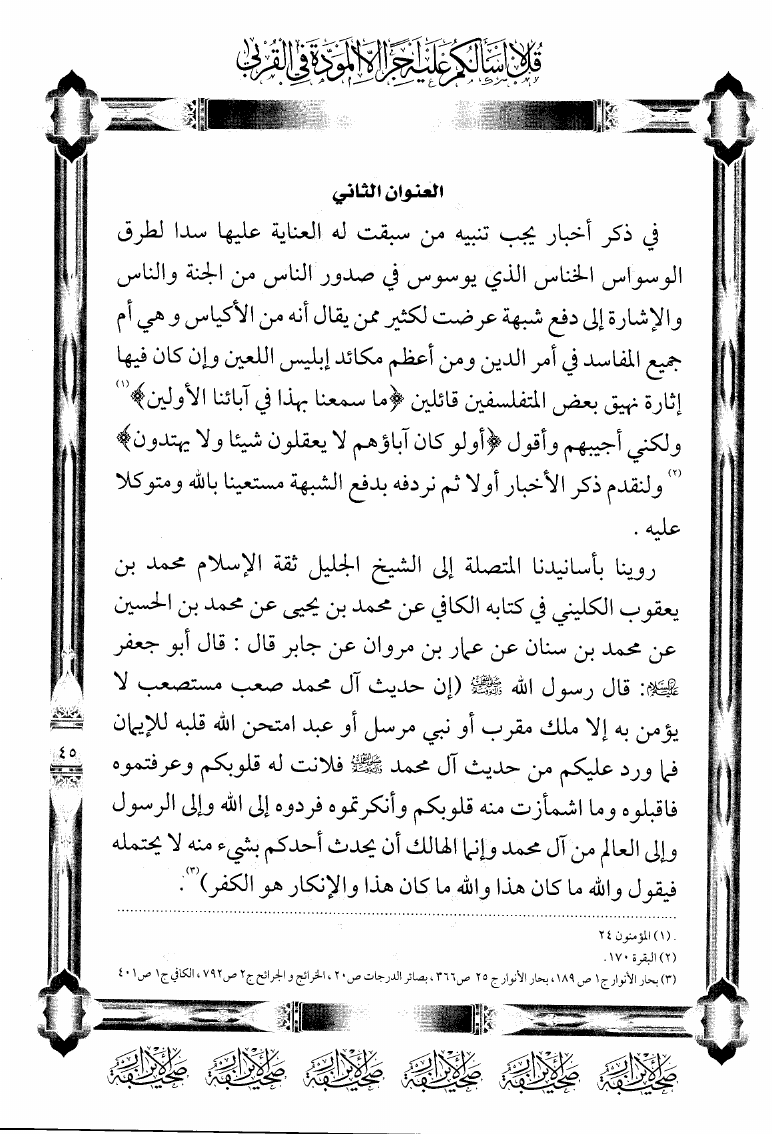 قل لا أسألكم عليه أجرا إلا المودة في القربى
العنوان الثاني
في ذكر أخبار يجب تنبيه من سبقت له العناية عليها سدا لطرق
الوسواس الخناس الذي يوسوس في صدور الناس من الجنة والناس
والإشارة إلى دفع شبهة عرضت لكثير ممن يقال أنه من الأكياس وهي أم
جميع المفاسد في أمر الدين ومن أعظم مكائد إبليس اللعين وإن كان فيها
إثارة نهيق بعض المتفلسفين قائلين ﴿ما سمعنا بهذا في آبائنا الأولين﴾(١)
ولكني أجيبهم وأقول ﴿أولو كان آباؤهم لا يعقلون شيئا ولا يهتدون﴾
(٢) ولنقدم ذكر الأخبار أولا ثم نردفه بدفع الشبهة مستعينا بالله ومتوكلا
عليه .
روينا بأسانيدنا المتصلة إلى الشيخ الجليل ثقة الإسلام محمد بن
يعقوب الكليني في كتابه الكافي عن محمد بن يحيى عن محمد بن الحسين
عن محمد بن سنان عن عمار بن مروان عن جابر قال : قال أبو جعفر
عليه السلام: قال رسول الله ﷺ (إن حديث آل محمد صعب مستصعب لا
يؤمن به إلا ملك مقرب أو نبي مرسل أو عبد امتحن الله قلبه للإيمان
فما ورد عليكم من حديث آل محمد ﷺ فلانت له قلوبكم وعرفتموه
فاقبلوه وما اشمأزت منه قلوبكم وأنكرتموه فردوه إلى الله وإلى الرسول
وإلى العالم من آل محمد وإنما الهالك أن يحدث أحدكم بشيء منه لا يحتمله
فيقول والله ما كان هذا والله ما كان هذا والإنكار هو الكفر)(٣).
٤٥
(١) المؤمنون ٢٤.
(٢) البقرة ١٧٠.
(٣) بحار الأنوار ج١ ص١٨٩، بحار الأنوار ج ٢٥ ص٣٦٦، بصائر الدرجات ص٢٠، الخرائج و الجرائح ج٢ ص٧٩٢، الكافي ج١ ص٤٠١
صحيفة الأبرار صحيفة الأبرار صحيفة الأبرار صحيفة الأبرار صحيفة الأبرار صحيفة الأبرار